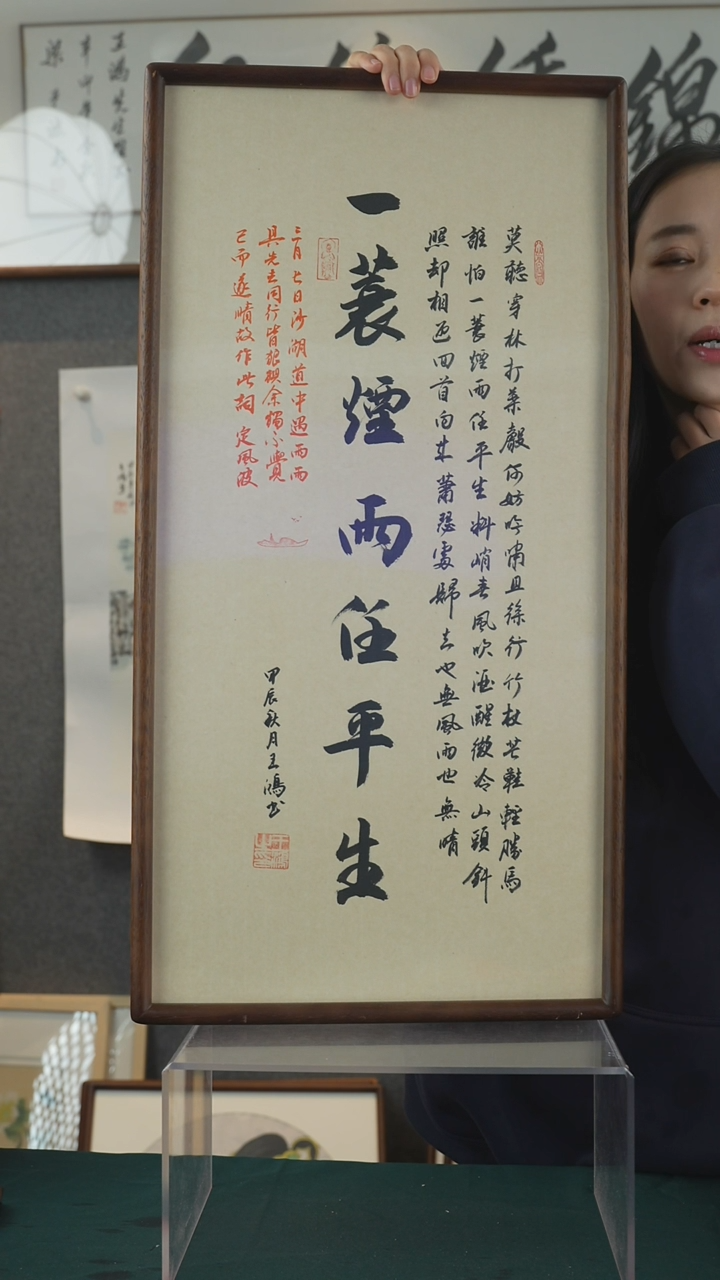 莫聽穿林打葉聲何妨吟嘯且徐行竹杖芒鞋輕勝馬
誰怕一蓑煙雨任平生料峭春風吹酒醒微冷山頭斜
照却相迎回首向來蕭瑟處歸去也無風雨也無晴
一蓑煙雨任平生
三月七日沙湖道中遇雨雨
具先去同行皆狼狽余獨不覺
已而遂晴故作此詞 定風波
甲辰秋月王鴻書
錦